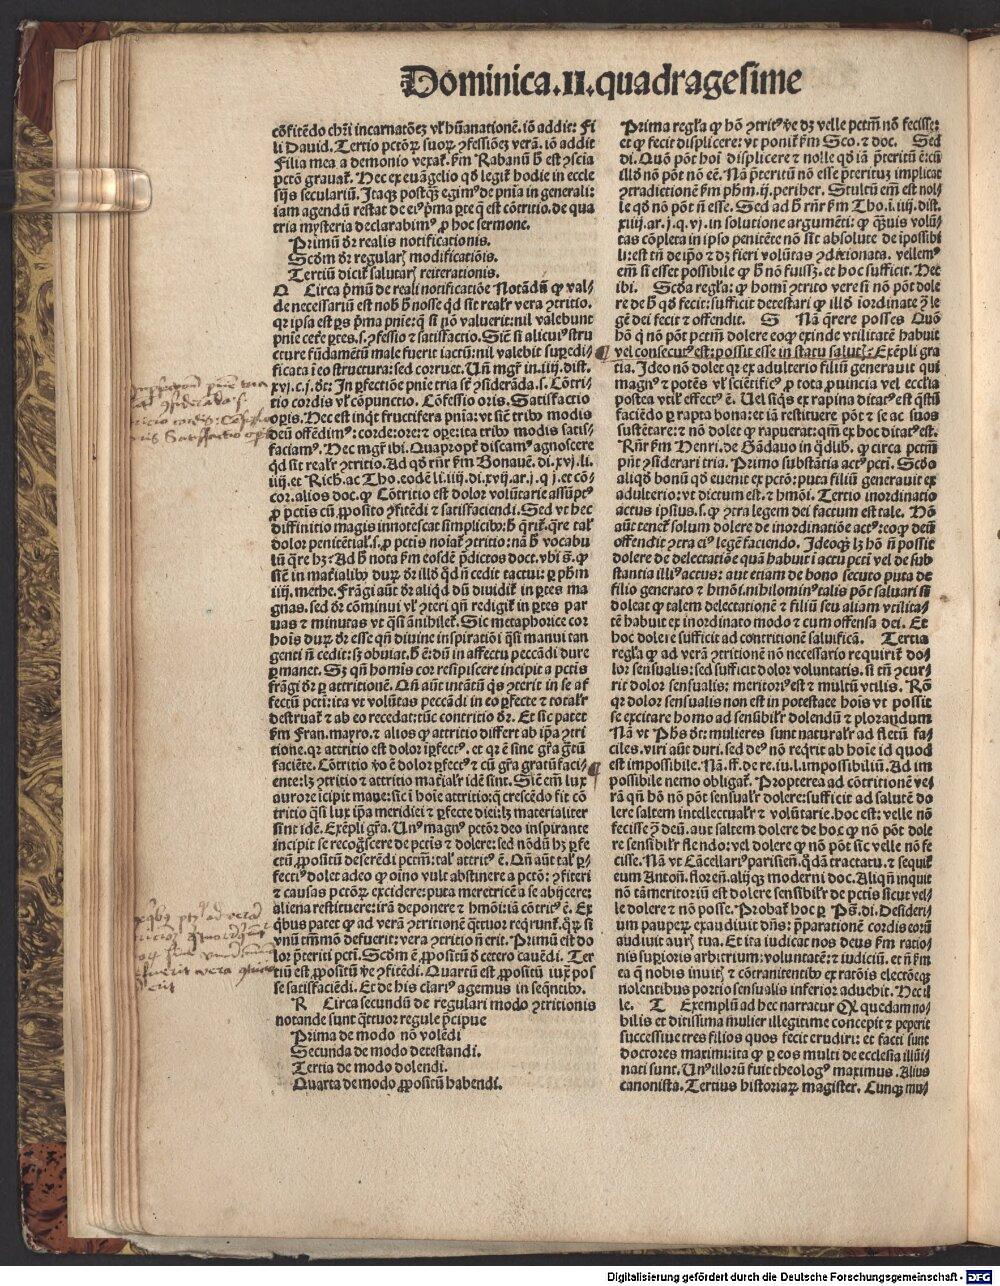 Dominica.II.quadragesime
cōfitēdo chr̄i incarnatōeʒ vl' hūanationē. iō addit: Fi
li Dauid. Tertio pctōꝝ suoꝝ ꝯfessiōeʒ verā. iō addit
Filia mea a demonio vexat̄. ẜm Rabanū h̄ est ꝯscia
pctō grauat̄. Hec ex euāgelio qd̄ legit̄ hodie in eccle
sijs seculariū. Itaqʒ postqʒ egimꝰ de pnīa in generali:
iam agendū restat de eiꝰ p̄ma ꝑte q̄ est cōtritio. de qua
tria mysteria declarabimꝰ ꝓ hoc sermone.
Primū dr̄ realis notificationis.
Scd̄m dr̄ regularꝭ modificatiōis.
Tertiū dicit̄ salutarꝭ reiterationis.
Q Circa p̄mū de reali notificatiōe Notādū ꝙ val⸗
de necessariū est nob̄ h̄ nosse qd̄ sit realr̄ vera ꝯtritio.
qr ipsa est ꝑs p̄ma pnie: q̄ si nō valuerit: nil valebunt
pnie cete ꝑtes. s. ꝯfessio ⁊ satisfactio. Sic̄ si alicuiꝰ stru
cture fūdamētū male fuerit iactū: nil valebit suꝑedi⸗
ficata ī eo structura: sed corruet. Uñ mgr̄ in .iiij. dist.
xvj. c. j. dt: In ꝑfectiōe pnie tria st̄ ꝯsiderāda. s. Cōtri
tio cordis vl' cōpunctio. Cōfessio oris. Satisfactio
oꝑis. Hec est inqt fructifera pnīa: vt sic̄ tribꝰ modis
deū offēdimꝰ: corde: ore: ⁊ oꝑe: ita tribꝰ modis satis⸗
faciamꝰ. Hec mgr̄ ibi. Quapropt̄ discamꝰ agnoscere
qd̄ sit realr̄ ꝯtritio. Ad qd̄ rñr ẜm Bonauē. di. xvj. li.
iiij. et Rich. ac Tho. eodē li. iiij. di. xvij. ar. j. q j. et cō⸗
cor. alios doc. ꝙ Cōtritio est dolor volūtarie assūptꝰ
ꝓ pctis cū ꝓposito ꝯfitēdi ⁊ satisfaciendi. Sed vt hec
diffinitio magis innotescat simplicibꝰ: h̄ q̄rit̄. qre tal'
dolor penitētial'. s. ꝓ pctis noiat̄ ꝯtritio: nā h̄ vocabu
lū q̄re hʒ: Ad h̄ nota ẜm eosdē p̄dictos doct. vbi s̄. ꝙ
sic̄ in mat̄ialibꝰ duꝝ dr̄ illd̄ qd̄ ñ cedit tactui: ꝑ phm̄
iiij. methe. Frāgi aūt dr̄ aliqd̄ dū diuidit̄ in ꝑtes ma
gnas. sed dr̄ cōminui vl' ꝯteri qñ redigit̄ in ꝑtes par
uas ⁊ minutas vt q̄si ānihilet̄. Sic metaphorice cor
hois duꝝ dr̄ esse qñ divine inspiratiōi q̄si manui tan
genti ñ cedit: sʒ obuiat. h̄ ē: dū in affectu peccādi dure
ꝑmanet. Sʒ qñ homis cor resipiscere incipit a pctis
frāgi dr̄ ꝑ attritionē. Qñ aūt intātū qs ꝯterit in se af
fectū pcti: ita vt volūtas peccādi in eo ꝑfecte ⁊ totalr̄
destruat̄ ⁊ ab eo recedat: tūc contritio dr̄. Et sic patet
ẜm Fran. mayro. ⁊ alios ꝙ attritio differt ab ip̄a ꝯtri
tione. qr attritio est dolor īꝑfectꝰ. et qr ē sine gr̄a gr̄tū
faciēte. Cōtritio v̄o ē dolor ꝑfectꝰ ⁊ cū gr̄a gratū faci⸗
ente: lʒ ꝯtritio ⁊ attritio mat̄ialr̄ idē sint. Sic̄ em̄ lux
aurore īcipit mane: sic ī hoīe attritio: q̄ crescēdo fit cō
tritio q̄si lux ip̄a meridiei ⁊ ꝑfecte diei: lʒ materialiter
sint idē. Exēpli gr̄a. Unꝰ magnꝰ pctōr deo inspirante
incipit se recog̊scere de pctis ⁊ dolere: sed nōdū hʒ ꝑfe
ctū ꝓpositū deserēdi pctm̄: tal' attritꝰ ē. Qñ aūt tal' ꝑ⸗
fectiꝰ dolet adeo ꝙ oīno vult abstinere a pctō: ꝯfiteri
⁊ causas pctōꝝ excidere: puta meretricē a se abijcere:
aliena restituere: irā deponere ⁊ hmōi: iā cōtritꝰ ē. Ex
qbus patet ꝙ ad verā ꝯtritionē q̄ttuor reqrunt̄. q̄ꝝ si
vnū tm̄mō defuerit: vera ꝯtritio ñ erit. Primū est do
lor p̄teriti pcti. Scd̄m ē ꝓpositū d̄ cetero cauēdi. Ter
tiū est ꝓpositū v̄e ꝯfitēdi. Quartū est ꝓpositū iuxꝭ pos
se satisfaciēdi. Et de his clariꝰ agemus in seq̄ntibꝰ.
R Circa secundū de regulari modo ꝯtritionis
notande sunt q̄ttuor regule p̄cipue
Prima de modo nō volēdi
Secunda de modo detestandi.
Tertia de modo dolendi.
Quarta de modo ꝓpositū habendi.
Prima regl'a ꝙ hō ꝯtritꝰ v̄e dʒ velle pctm̄ nō fecisse:
et ꝙ fecit displicere: vt ponit̄ ẜm Sco. ⁊ doc. Sed
di. Quō pōt hoī displicere ⁊ nolle qd̄ iā p̄teritū ē: cū
illd̄ nō pōt nō eē. Nā p̄teritū nō esse p̄teritum implicat
ꝯtradictionē ẜm phm̄. ij. periher. Stultū em̄ est nol⸗
le qd̄ nō pōt ñ esse. Sed ad h̄ rñr ẜm Tho. i. iiij. dist.
xiiij. ar. j. q. vj. in solutione argumēti: ꝙ q̄uis volū⸗
tas cōpleta in ipso penitēte nō sit absolute de īpossibi
li: est tñ de ip̄o ⁊ dʒ fieri volūtas ꝯditionata. vellem
em̄ si esset possibile ꝙ h̄ nō fuissʒ. et hoc sufficit. Hec
ibi. Scd̄a regl'a: ꝙ homī ꝯtrito vere si nō pōt dole
re de h̄ qd̄ fecit: sufficit detestari ꝙ illd̄ iordinate ꝯ̄ le
gē dei fecit ⁊ offendit. S Nā q̄rere posses Quō
hō q̄ nō pōt pctm̄ dolere eoqꝫ exinde vtilitatē habuit
vel consecutꝰ est: possit esse in statu salutꝭ: Exēpli gra
tia. Ideo nō dolet qr ex adulterio filiū generauit qui
magnꝰ ⁊ potēs vl' sciētificꝰ ꝓ tota ꝓuincia vel eccl'ia
postea vtil' effectꝰ ē. Vel siqs ex rapina ditatꝰ est q̄stū
faciēdo ꝑ rapta bona: et iā restituere pōt ⁊ se ac suos
sustētare: ⁊ nō dolet ꝙ rapuerat: qm̄ ex hoc ditatꝰ est.
Rñr ẜm Henri. de Gādauo in q̄dlib. ꝙ circa pctm̄
pñt ꝯsiderari tria. Primo substātia actꝰ pcti. Scd̄o
aliqd̄ bonū qd̄ euenit ex pctō: puta filiū generauit ex
adulterio: vt dictum est. ⁊ hmōi. Tertio inordinatio
actus ipsius. s. ꝙ ꝯtra legem dei factum est tale. Hō
aūt tenet̄ solum dolere de inordinatiōe actꝰ: eoꝙ deū
offendit ꝯtra eiꝰ legē faciendo. Ideoqʒ lʒ hō ñ possit
dolere de delectatiōe quā habuit ī actu pcti vel de sub
stantia illiꝰ actus: aut etiam de bono secuto puta de
filio generato ⁊ hmōi. nihilominꝰ talis pōt saluari si
doleat ꝙ talem delectationē ⁊ filiū seu aliam vtilita⸗
tē habuit ex inordinato modo ⁊ cum offensa dei. Et
hoc dolere sufficit ad contritionē saluificā. Tertia
regl'a ꝙ ad verā ꝯtritionē nō necessario requirit̄ do⸗
lor sensualis: sed sufficit dolor voluntatis. si tñ ꝯcur⸗
rit dolor sensualis: meritoriꝰ est ⁊ multū vtilis. Rō
qr dolor sensualis non est in potestate hois vt possit
se excitare homo ad sensibil'r dolendū ⁊ plorandum
Nā vt Ph̄s dt: mulieres sunt naturalr̄ ad fletū fa⸗
ciles. viri aūt duri. sed deꝰ nō reqrit ab hoīe id quod
est impossibile. Nā. ff. de re. iu. l. impossibiliū. Ad im
possibile nemo obligat̄. Propterea ad cōtritionē ve⸗
rā qñ hō nō pōt sensualr̄ dolere: sufficit ad salutē do
lere saltem intellectualr̄ ⁊ volūtarie. hoc est: velle nō
fecisse ꝯ̄ deū. aut saltem dolere de hoc ꝙ nō pōt dole
re sensibil'r flendo: vel dolere ꝙ nō pōt sic velle nō fe
cisse. Nā vt Cācellariꝰ parisieñ. q̄dā tractatu. ⁊ sequit̄
eum Antoñ. floreñ. alijqʒ moderni doc. Aliqñ inquit
nō tā meritoriū est dolere sensibil'r de pctis sicut vel⸗
le dolere ⁊ nō posse. Probat̄ hoc ꝑ Ps̄. di. Desideri
um pauperꝫ exaudiuit dñs: p̄parationē cordis eoꝝ
audiuit aurꝭ tua. Et ita iudicat nos deus ẜm ratio⸗
nis suꝑioris arbitrium: voluntatē: ⁊ iudiciū. et ñ ẜm
ea q̄ nobis inuitꝭ ⁊ cōtranitentibꝰ ex ratōis electōeqʒ
nolentibus portio sensualis inferior aduehit. Hec il
le. T Exemplū ad hec narratur Qꝫ quedam no⸗
bilis et ditissima mulier illegitime concepit ⁊ peperit
successiue tres filios quos fecit erudiri: et facti sunt
doctores maximi: ita ꝙ ꝑ eos multi de ecclesia illūi⸗
nati sunt. Unꝰ illorū fuit theologꝰ maximus. Alius
canonista. Tertius historiaꝝ magister. Cunqʒ mu⸗
Digitalisierung gefördert durch die Deutsche Forschungsgemeinschaft - DFG